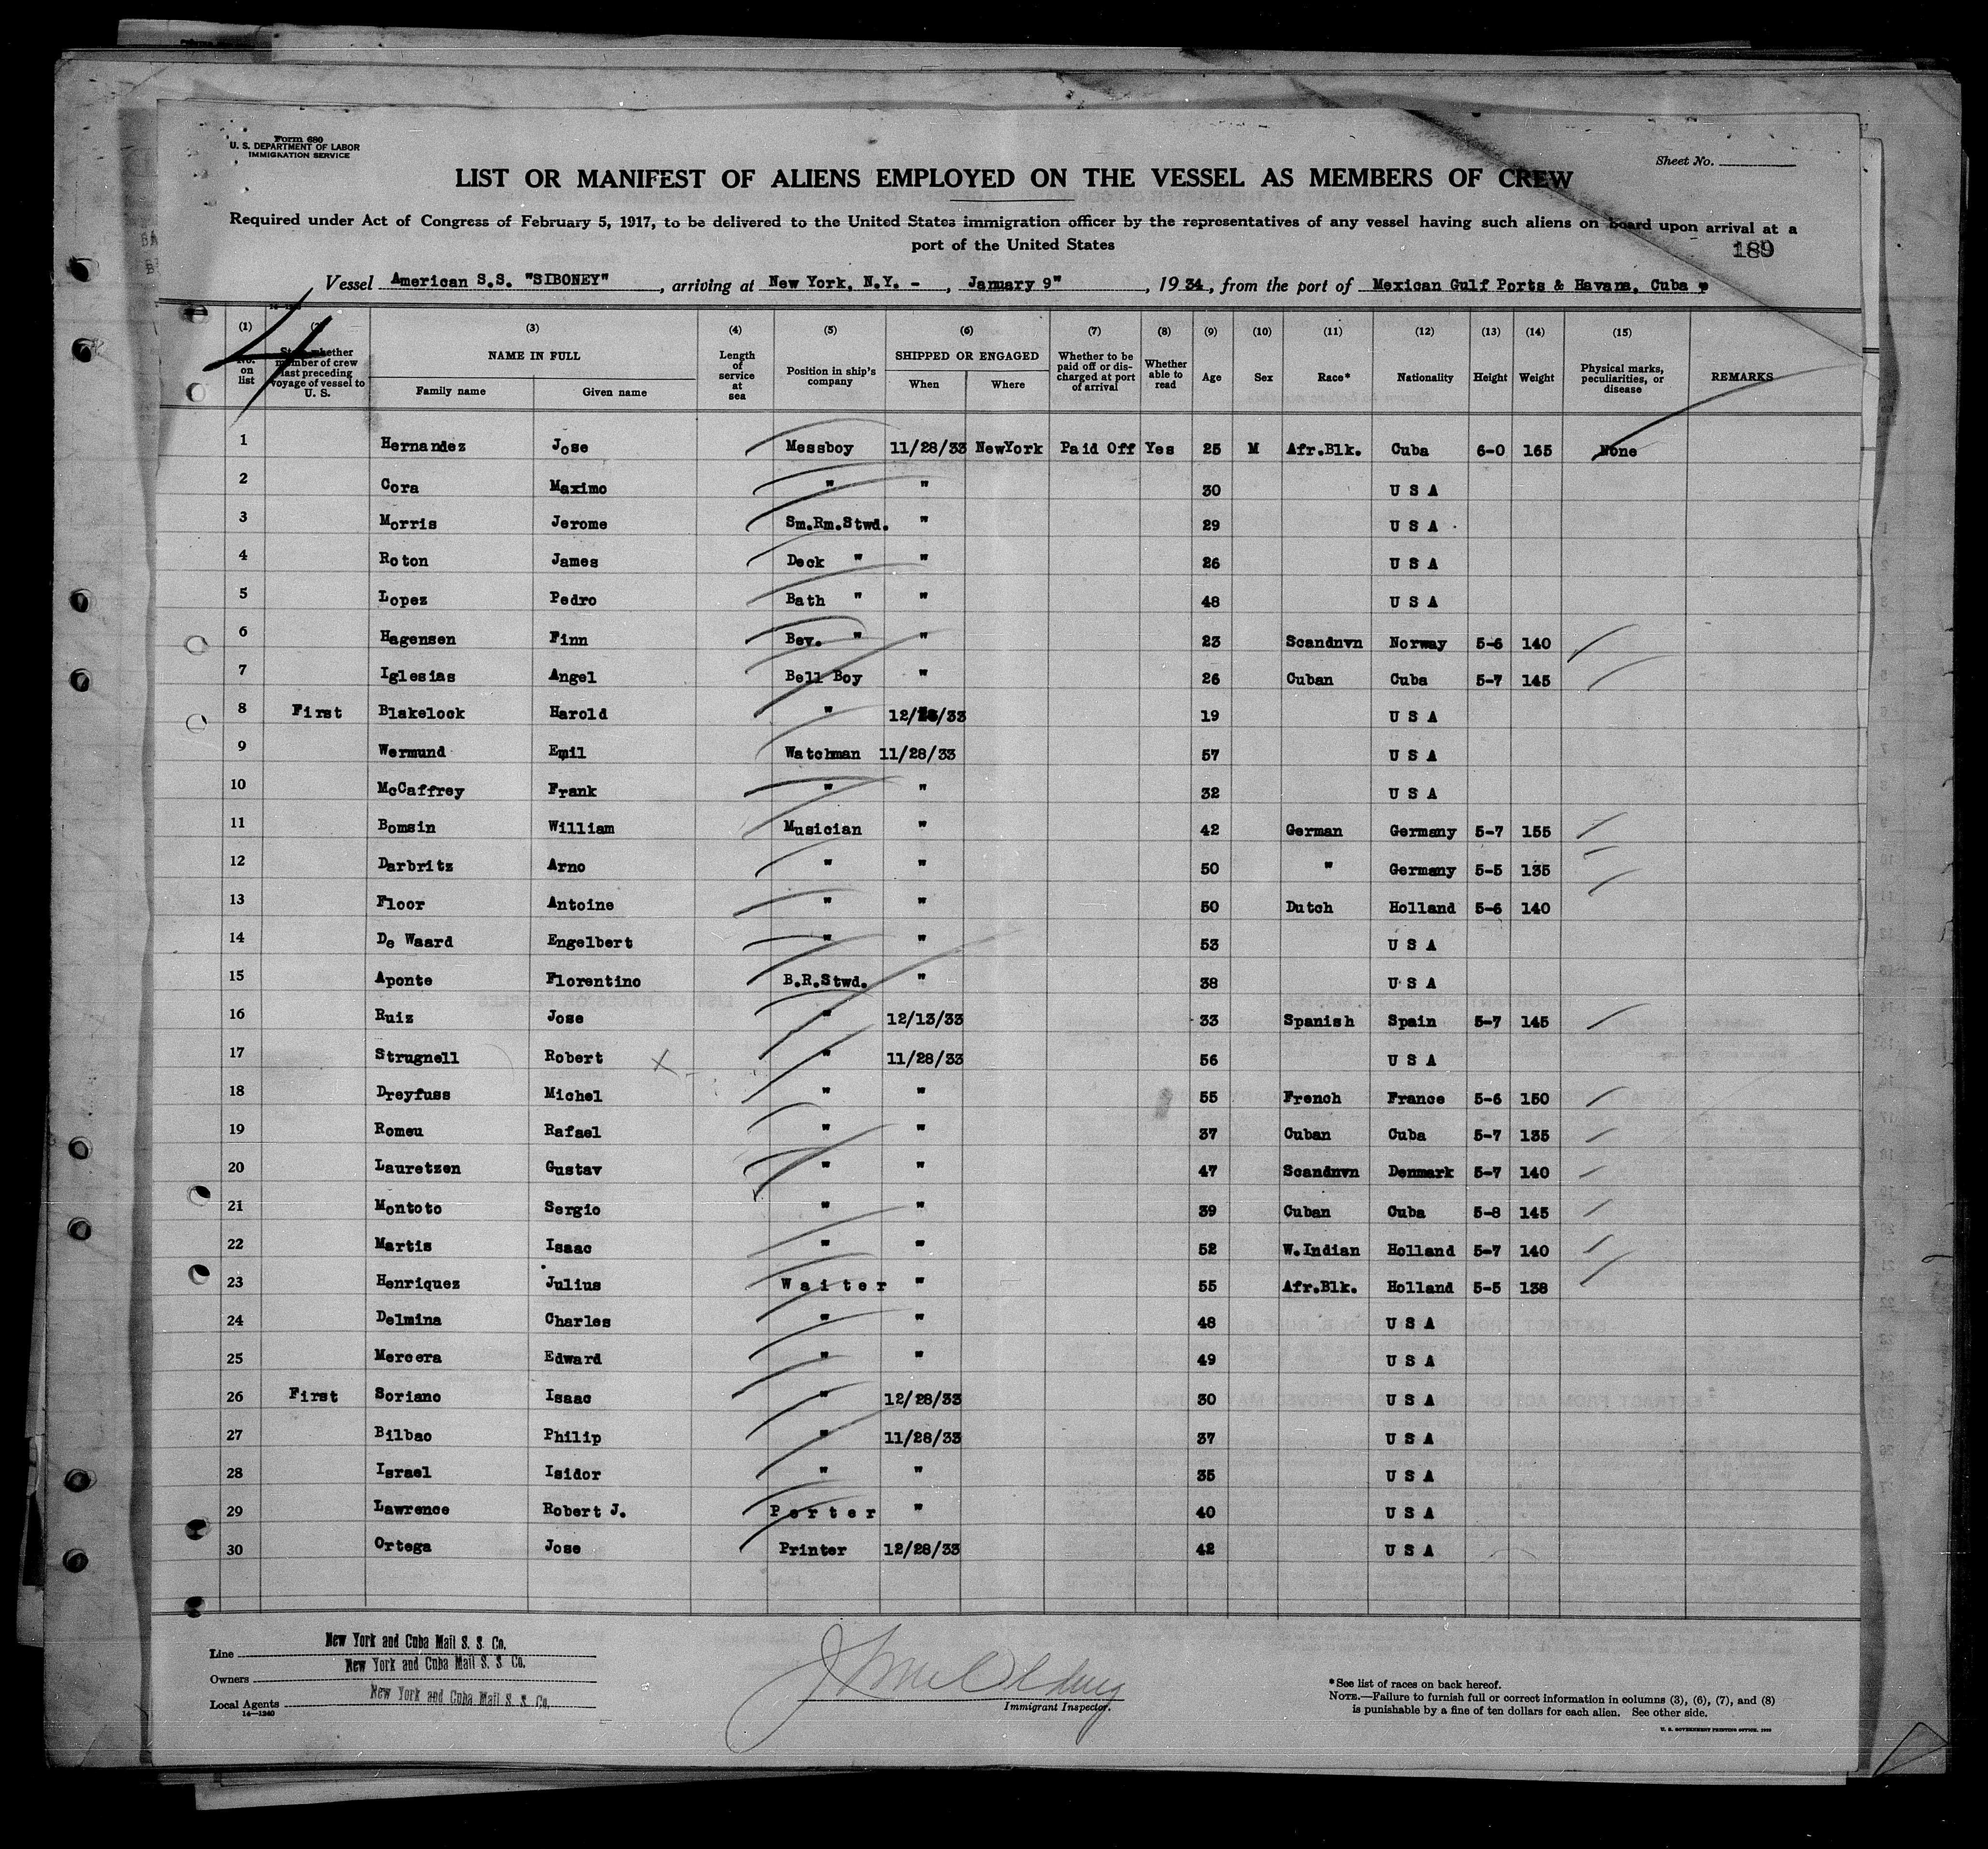 Form 680
U. S. DEPARTMENT OF LABOR
IMMIGRATION SERVICE
Sheet No.
LIST OR MANIFEST OF ALIENS EMPLOYED ON THE VESSEL AS MEMBERS OF CREW
Required under Act of Congress of February 5, 1917, to be delivered to the United States immigration officer by the representatives of any vessel having such aliens on board upon arrival at a
port of the United States
189
Vessel American S.S. "SIBONEY", arriving at New York, N.Y. -, January 9", 1934, from the port of Mexican Gulf Ports & Havana, Cuba
4
(1) (2) (3) (4) (5) (6) (7) (8) (9) (10) (11) (12) (13) (14) (15)
No. on list State whether member of crew last preceding voyage of vessel to U. S. NAME IN FULL Family name Given name Length of service at sea Position in ship's company SHIPPED OR ENGAGED When Where Whether to be paid off or discharged at port of arrival Whether able to read Age Sex Race* Nationality Height Weight Physical marks, peculiarities, or disease REMARKS
1 Hernandez Jose Messboy 11/28/33 NewYork Paid Off Yes 25 M Afr.Blk. Cuba 6-0 165 None
2 Cora Maximo " " 30 U S A
3 Morris Jerome Sm.Rm.Stwd. " 29 U S A
4 Roton James Deck " " 26 U S A
5 Lopez Pedro Bath " " 48 U S A
6 Hagensen Finn Bev. " " 23 Scandnvn Norway 5-6 140
7 Iglesias Angel Bell Boy " 26 Cuban Cuba 5-7 145
8 First Blakelock Harold " 19 U S A
9 Wermund Emil Watchman 11/28/33 57 U S A
10 McCaffrey Frank " " 32 U S A
11 Bomsin William Musician " 42 German Germany 5-7 155
12 Darbritz Arno " " 50 " Germany 5-5 135
13 Floor Antoine " " 50 Dutch Holland 5-6 140
14 De Waard Engelbert " " 53 U S A
15 Aponte Florentino B.R.Stwd. " 38 U S A
16 Ruiz Jose " 12/13/33 33 Spanish Spain 5-7 145
17 Strugnell Robert X " 11/28/33 56 U S A
18 Dreyfuss Michel " " 55 French France 5-6 150
19 Romeu Rafael " " 37 Cuban Cuba 5-7 135
20 Lauretzen Gustav " " 47 Scandnvn Denmark 5-7 140
21 Montoto Sergio " " 39 Cuban Cuba 5-8 145
22 Martis Isaac " " 52 W.Indian Holland 5-7 140
23 Henriquez Julius Waiter " 55 Afr.Blk. Holland 5-5 138
24 Delmina Charles " " 48 U S A
25 Mercera Edward " " 49 U S A
26 First Soriano Isaac " 12/28/33 30 U S A
27 Bilbao Philip " 11/28/33 37 U S A
28 Israel Isidor " " 35 U S A
29 Lawrence Robert J. Porter " 40 U S A
30 Ortega Jose Printer 12/28/33 42 U S A
Line New York and Cuba Mail S. S. Co.
Owners New York and Cuba Mail S. S. Co.
Local Agents New York and Cuba Mail S. S. Co.
14—1240
Immigrant Inspector.
*See list of races on back hereof.
NOTE.—Failure to furnish full or correct information in columns (3), (6), (7), and (8)
is punishable by a fine of ten dollars for each alien. See other side.